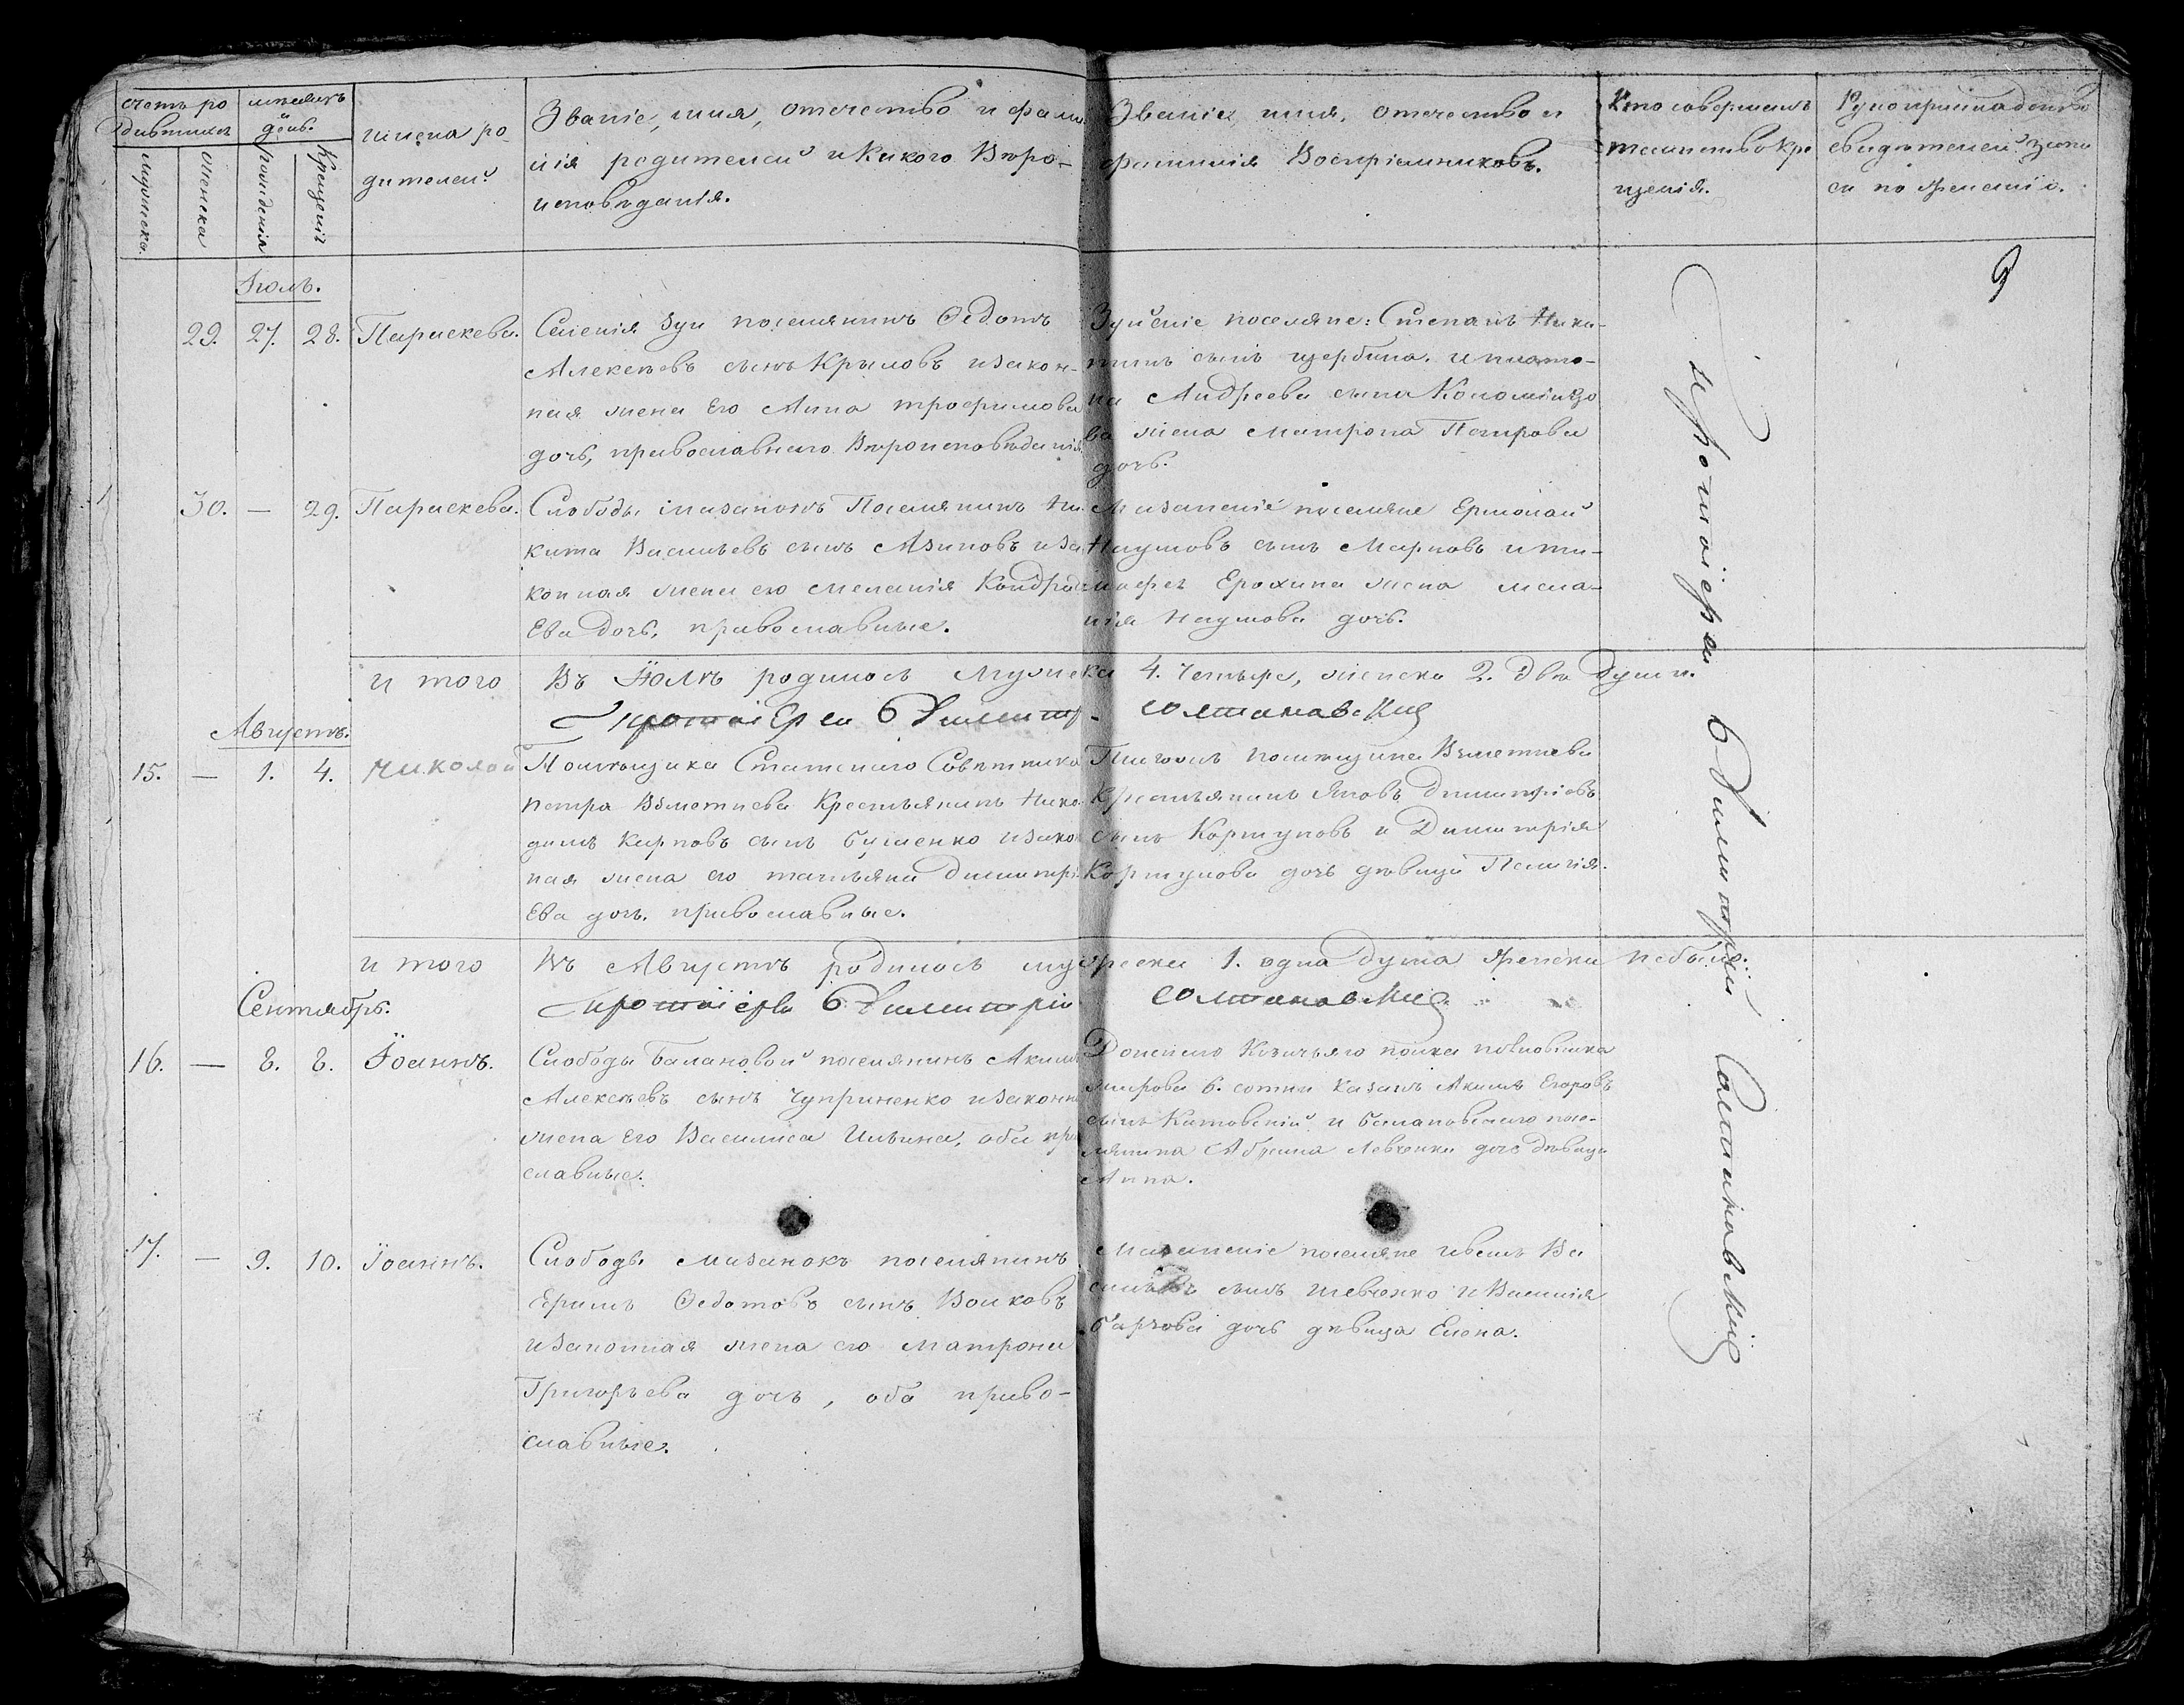 счетъ ро
дившихся
мужеска.
женска
мѣсяцъ
и
день.
рожденія
Крещенія
имена ро-
дителей.
Званіе, имя, отечество и фами
лія родителей и Какого Вѣро-
исповѣданія.
Званіе, имя, отечество и
фамилія Воспріемниковъ.
Кто совершалъ
таинство Кре
щенія.
Рукоприкладство
свидѣтелей записи
по желанію.
9
Іюль.
29. 27. 28. Параскева.
Селенія Зуи поселянинъ Ѳедотъ
Алексѣевъ сынъ Крыловъ и закон-
ная жена Его Анна трофимова
дочь, православнаго Вѣроисповѣданія
Зуйскіе поселяне: Степанъ Ники-
тинъ сынъ щербина. и плато-
на Андреева сына Коломійцо
ва жена Матрона Петрова
дочь.
30. — 29. Параскева.
Слободы мазанокъ Поселянинъ Ни
кита Васильевъ сынъ Азиновъ и за
конная жена его меланія Кондрать
Ева дочь, православные.
Мазанскіе поселяне Ермолай
Наумовъ сынъ Марковъ и ти-
мофея Ерохина жена мела-
нія Наумова дочь.
и того Въ Іюлѣ родилось мужеска 4. четыре, женска 2. двѣ души.
Протоіерей Димитрій Солтановскій
Августъ.
15. — 1. 4. Николай
Помѣщика Статскаго Совѣтника
петра Взметнева Крестьянинъ Нико
димъ Карповъ сынъ бушенко и закон
ная жена его татьяна димитрі
Ева дочь. православные.
помѣщика Взметнева
Крестьянинъ Яковъ Димитріевъ
сынъ Коршуновъ и Димитрія
Коршунова дочь дѣвица Пелагія.
и того Въ Августѣ родилось мужеска 1. одна душа женска небыло.
Протоіерей Димитрій Солтановскій
Сентябрь.
16. — 8. 8. Іоаннъ.
Слободы Балановой поселянинъ Акимъ
Алексѣевъ сынъ Чуприненко и законная
жена его Василиса Ильина, оба право
славные.
Донскаго Козачьяго полка полковника
мирова 6. сотни казакъ Акимъ Егоровъ
сынъ Катовскій и балановскаго посе-
лянина Абрама Левченки дочь дѣвица
Анна.
17. — 9. 10. Іоаннъ.
Слободы мазанокъ поселянинъ
Ефимъ Ѳедотовъ сынъ Волковъ
и законная жена его матрона
Григорьева дочь, оба право-
славные.
Мазанскіе поселяне иванъ Ва
сильевъ сынъ шевченко и Василія
дочь дѣвица Елена.
Протоіерей Димитрій Солтановскій